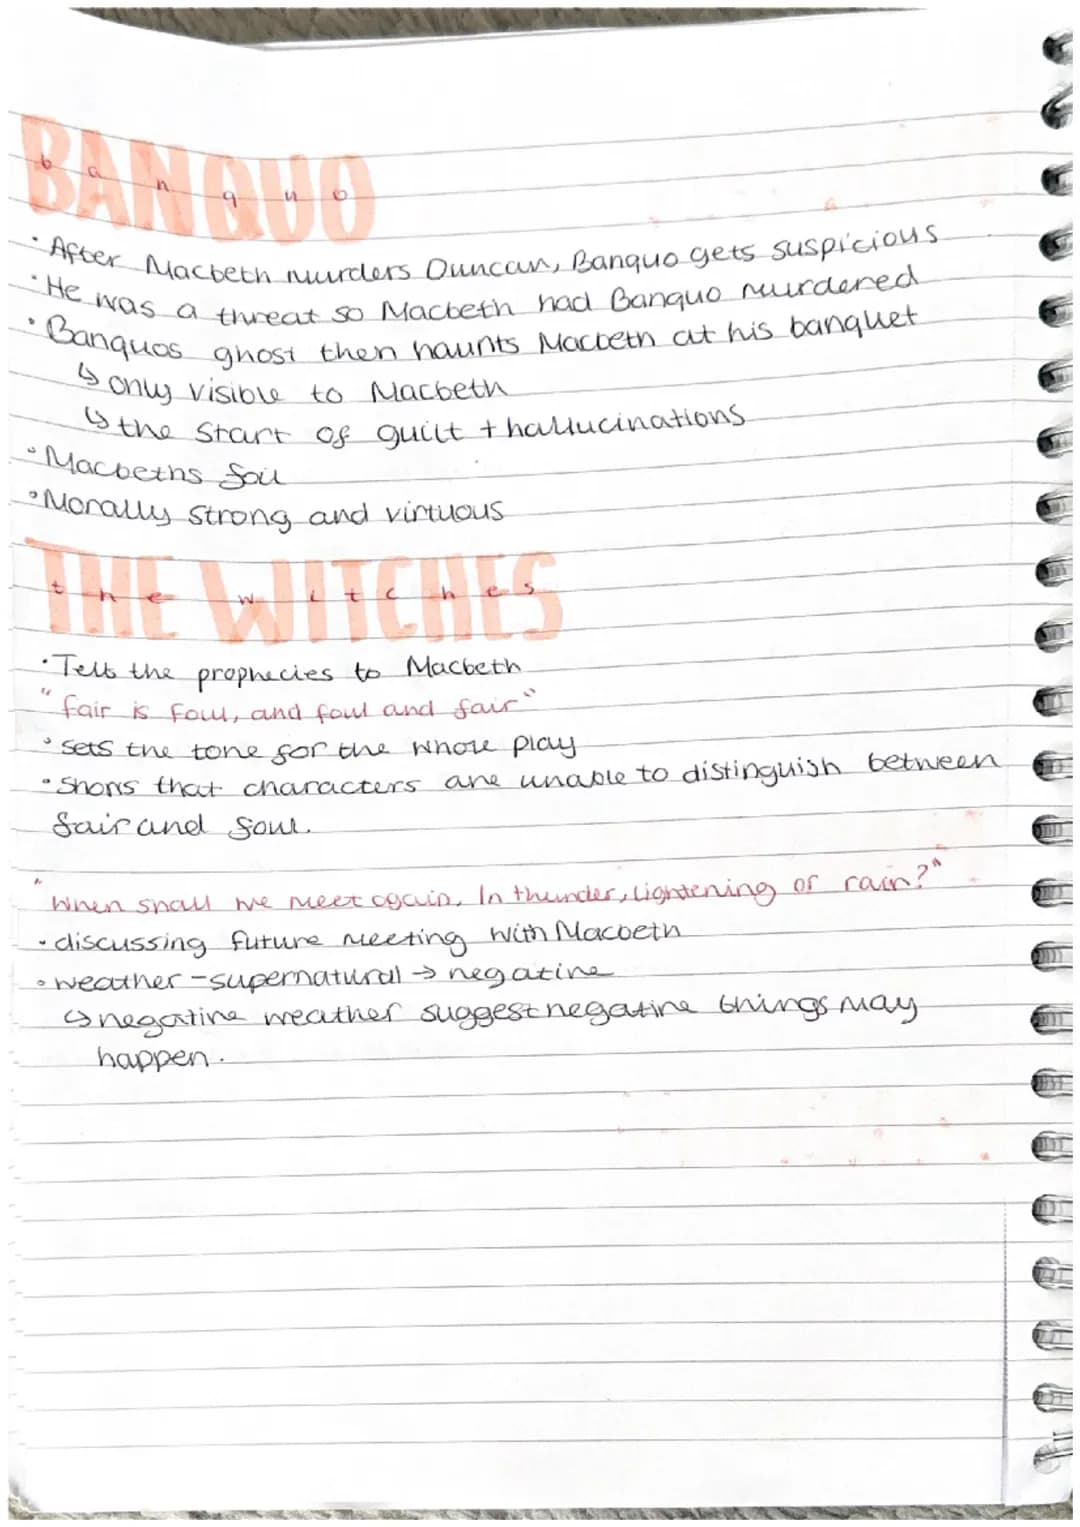 BANQUO
banquo
· After Macbeth murders Duncan, Banquo gets suspicious
· He was a threat so Macbeth had Banquo murdered
· Banquos ghost then haunts Macbeth at his banquet
↳ only visible to Macbeth
↳ the start of guilt + hallucinations
· Macbeths foil
· Morally strong and virtuous
THE WITCHES
the witches
· Tells the prophecies to Macbeth
"fair is foul, and foul and fair"
· sets the tone for the whole play
· Shows that characters are unable to distinguish between
fair and foul.
"When shall we meet again. In thunder, lightening or rain?"
· discussing future meeting with Macbeth
· weather - supernatural → negative
↳ negative weather suggest negative things may
happen.